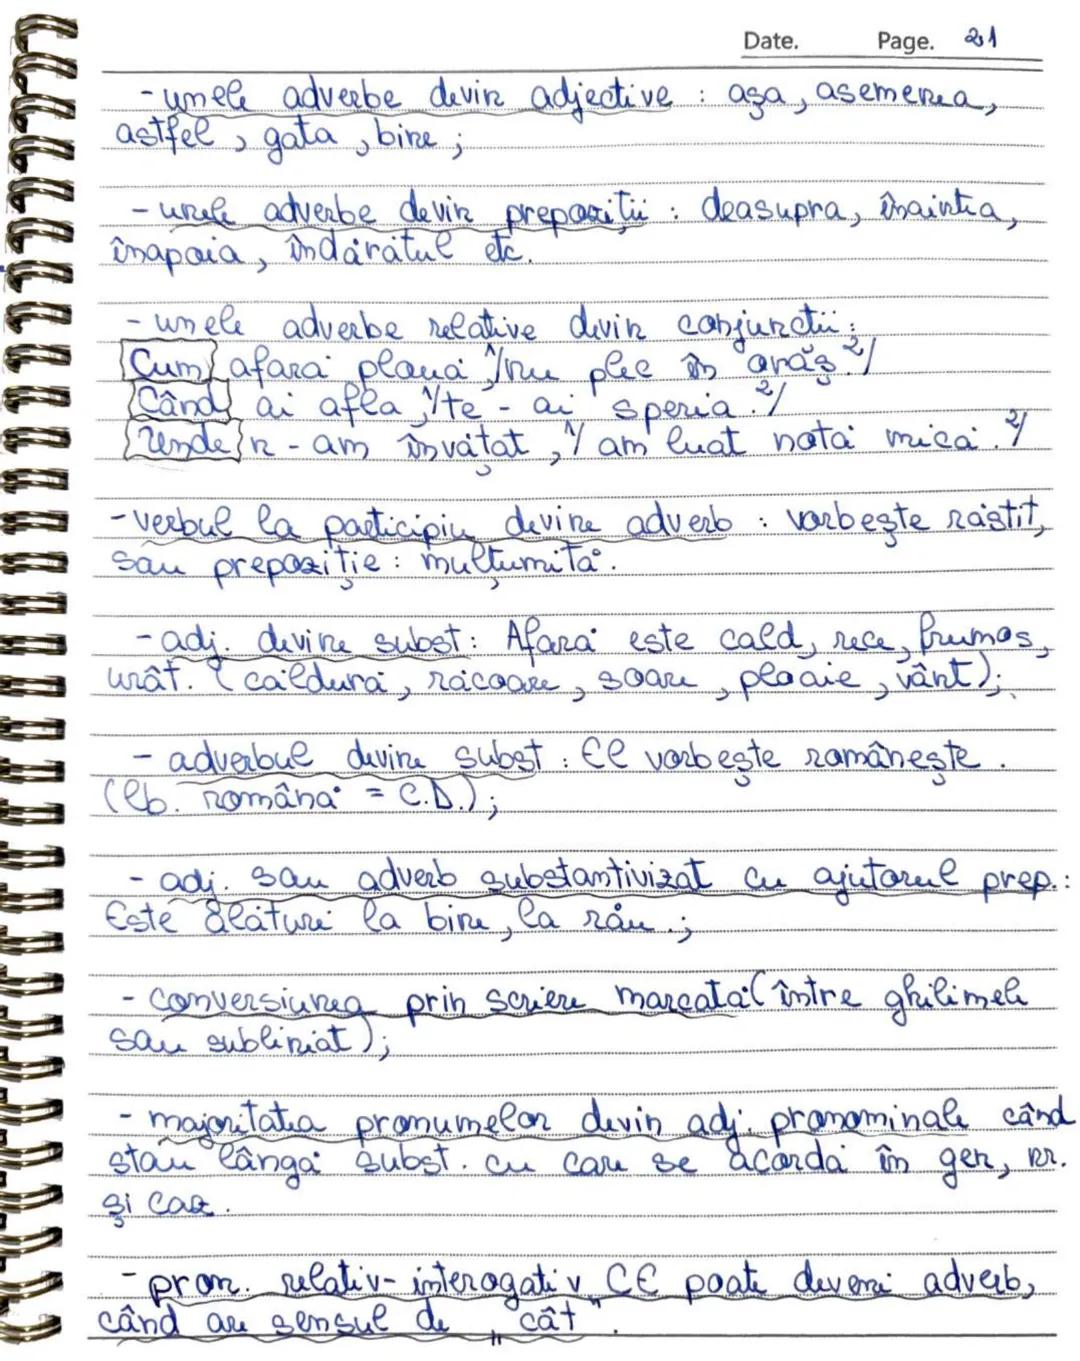 Date. Page. 21
- unele adverbe devin adjective : așa, asemenea,
astfel, gata, bine;
- unele adverbe devin prepoziții : deasupra, înaintea,
înapoia, îndărătul etc.
- unele adverbe relative devin conjuncții :
Cum afară plouă,1/nu plec în oraș.2/
Când ai afla,1/te-ai speria.2/
Unde n-am învățat,1/am luat notă mică.2/
- verbul la participiu devine adverb : vorbește răstit,
sau prepoziție : mulțumită.
- adj. devine subst : Afară este cald, rece, frumos,
urât. (căldură, răcoare, soare, ploaie, vânt);
- adverbul devine subst : El vorbește românește.
(lb. română = C.D.);
- adj. sau adverb substantivizat cu ajutorul prep.:
Este alături la bine, la rău.;
- conversiunea prin scriere marcată (între ghilimele
sau subliniat);
- majoritatea pronumelor devin adj. pronominale când
stau lângă subst. cu care se acordă în gen, nr.
și caz.
- pron. relativ-interogativ CE poate deveni adverb,
când are sensul de „cât".